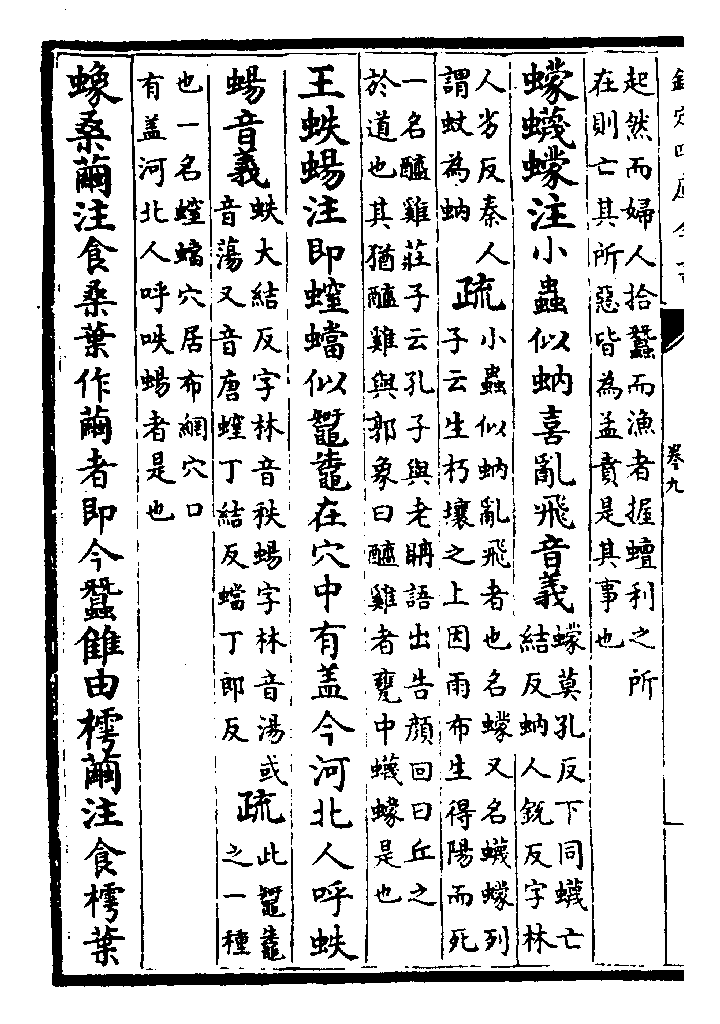 欽定四庫全書
卷九
起然而婦人拾蠶而漁者握鱣利之所
在則亡其所惡皆為孟賁是其事也
蠓蠛蠓注小蟲似蚋喜亂飛音義蠓莫孔反下同蠛亡
結反蚋人銳反字林
人劣反秦人
謂蚊為蚋
疏小蟲似蚋亂飛者也名蠓又名蠛蠓列
子云生朽壤之上因雨布生得陽而死
一名醯雞莊子云孔子與老聃語出告顔回曰丘之
於道也其猶醯雞與郭象曰醯雞者甕中蠛蠓是也
王蛈蝪注即螲蟷似鼅鼄在穴中有盖今河北人呼蛈
蝪音義蛈大結反字林音秩蝪字林音湯或
音蕩又音唐螲丁結反蟷丁郎反
疏此鼅鼄
之一種
也一名螲蟷穴居布網穴口
有盖河北人呼蛈蝪者是也
蟓桑繭注食桑葉作繭者即今蠶雔由樗繭注食樗葉